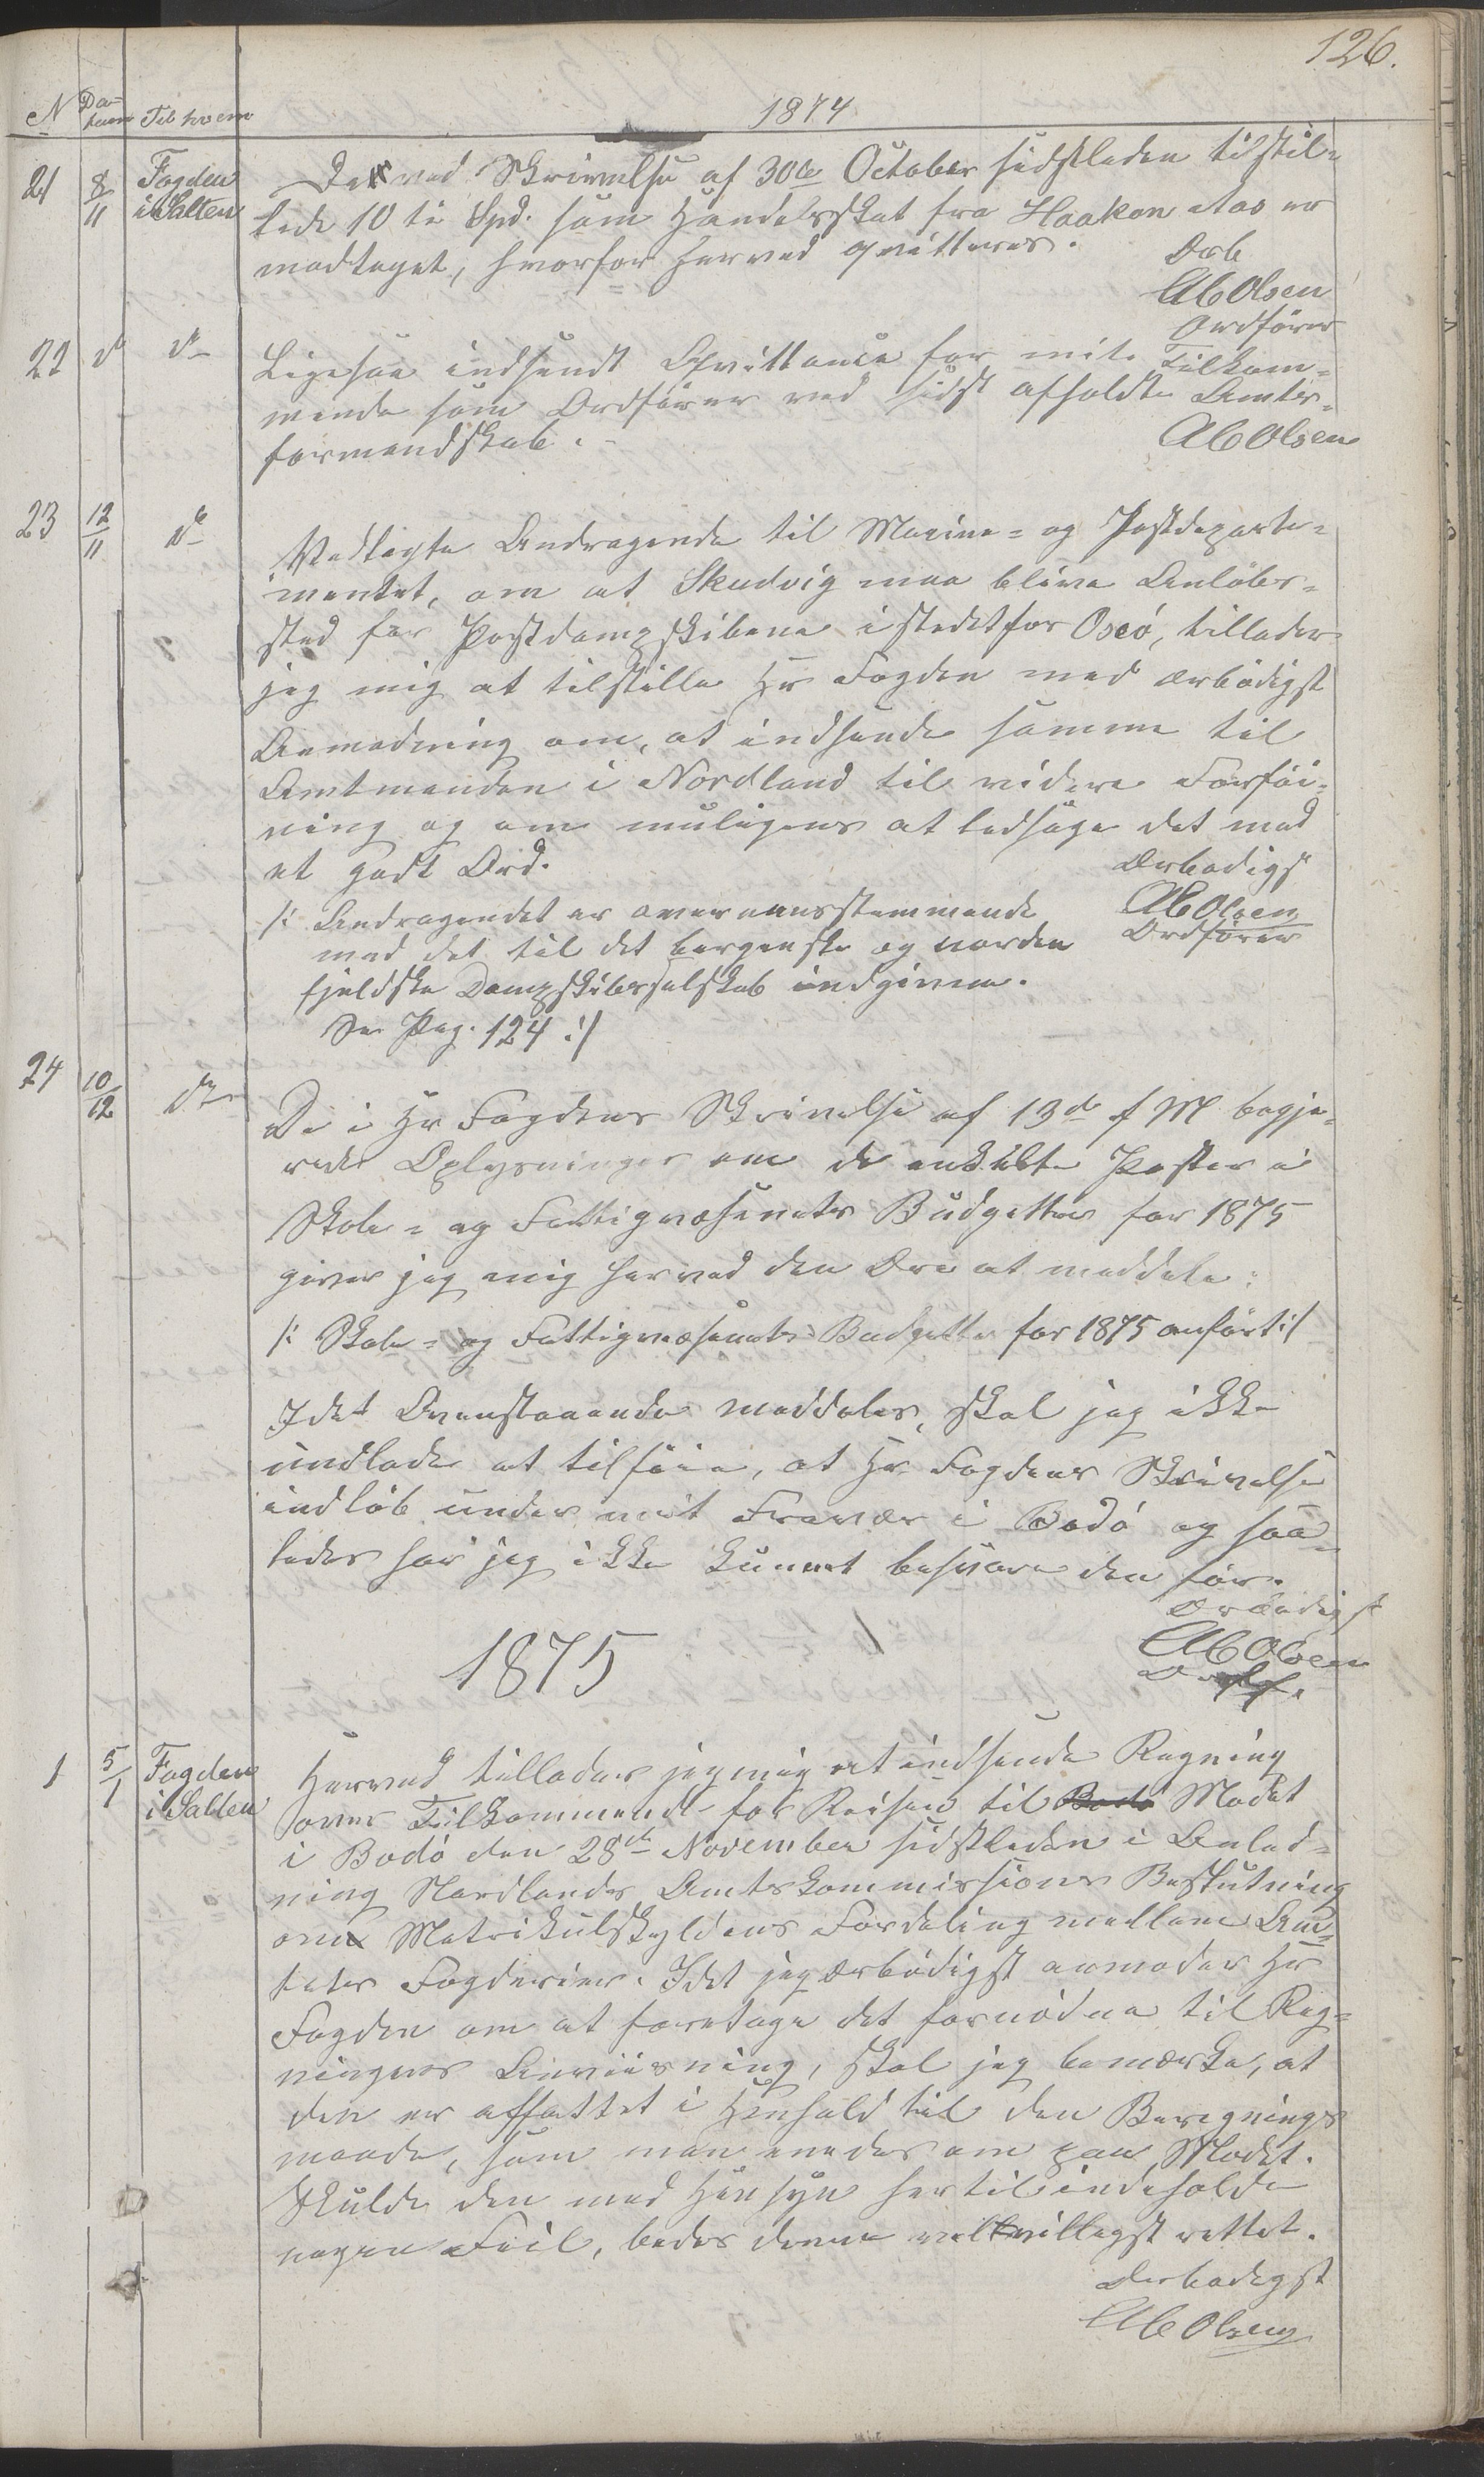 126.
N Datum Til hvem 1874
21 8/11 Fogden i Salten
De ved Skrivelse af 30te October sidstleden tilstil=
lede 10 ti Spd. som Handelsskat fra Haakon Aas er
modtaget, hvorfor herved qvitteres.
Ærb
AbOlsen
Ordfører
22 do do
Ligesaa indsendt Qvittance for mit Tilkom=
mende som Ordfører ved sidst afholdte Amts=
formandskab.
AbOlsen
23 12/11 do
Vedlagte Andragende til Marine= og Postdeparte=
mentet, om at Skudvig maa blive Anløbs=
sted for Postdampskibene istedetfor Oscø, tillader
jeg mig at tilstille Hr Fogden med ærbødigst
Anmodning om, at indsende samme til
Amtmanden i Nordland til videre Forføi=
ning og om muligens at ledsage det med
et godt Ord.
Ærbødigst
AbOlsen
Ordfører
/: Andragendet er overeensstemmende
med det til det bergenske og norden
fjeldske Dampskibsselskab indgivne.
Se Pag. 124 :/
24 10/12 do
De i Hr Fogdens Skrivelse af 13de f M begjæ=
rede Oplysninger om de enkelte Poster i
Skole= og Fattigvæsenets Budgetter for 1875
giver jeg mig herved den Ære at meddele:
/: Skole= og Fattigvæsenets Budgetter for 1875 anført :/
Idet Ovenstaaende meddeles, skal jeg ikke
undlade at tilføie, at Hr Fogdens Skrivelse
indløb under mit Fravær i Bodø og saa=
ledes har jeg ikke kunnet besvare den før.
Ærbødigst
AbOlsen
Ordf.
1875
1 5/1 Fogden i Salten
Herved tillader jeg mig at indsende Regning
over Tilkommende for Reisen til Bodø Mødet
i Bodø den 28de November sidstleden i Anled=
ning Nordlands Amtskommissions Beslutning
om Matrikulskyldens Fordeling mellem Am=
tets Fogderier. Idet jeg ærbødigst anmoder Hr
Fogden om at foretage det fornødne til Reg=
ningens Anviisning, skal jeg bemærke, at
den er affattet i Henhold til den Beregnings
maade, som man enedes om paa Mødet.
Skulde den med Hensyn hertil indeholde
nogen Feil, bedes denne velvilligst rettet.
Ærbødigst
AbOlsen